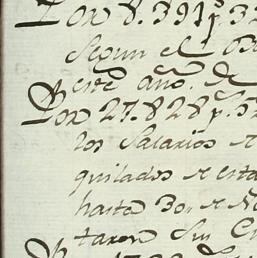 Por 8.391p.s 32
Segun el
este año. de
Por 27.828p.s
los Salarios
quilados de esta
hasta 30,, de
taron Sin